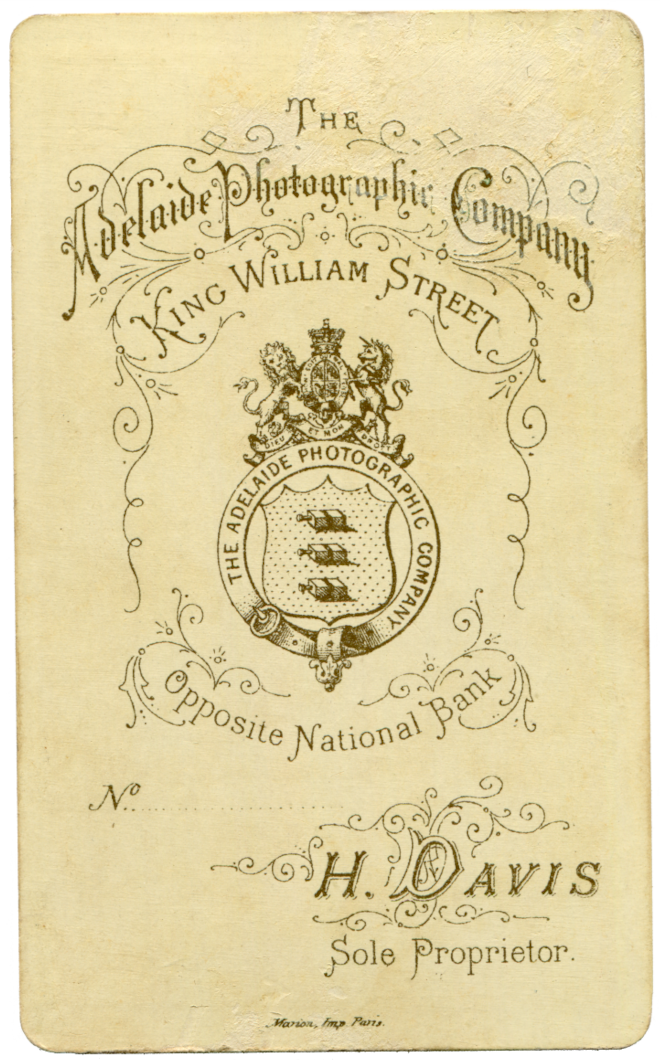 THE
Adelaide Photographic Company
KING WILLIAM STREET
DIEU ET MON DROIT
THE ADELAIDE PHOTOGRAPHIC COMPANY
Opposite National Bank
No.
H. DAVIS
Sole Proprietor.
Marion, Imp. Paris.